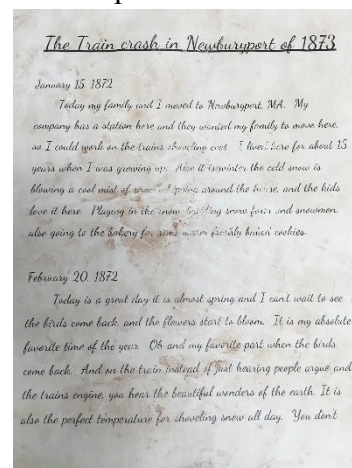 The Train crash in Newburyport of 1873
January 15, 1872
Today my family and I moved to Newburyport, MA. My
company has a station here and they wanted my family to move here,
so I could work on the trains shoveling coal. I lived here for about 15
years when I was growing up. Also it is winter the cold snow is
blowing a cool mist of snow around the house, and the kids
love it here. Playing in the snow, building snow forts and snowmen,
also going to the bakery for some warm freshly baked cookies.
February 20, 1872
Today is a great day it is almost spring and I can't wait to see
the birds come back, and the flowers start to bloom. It is my absolute
favorite time of the year. Oh and my favorite part when the birds
come back. And on the train instead of just hearing people argue and
the trains engine, you hear the beautiful wonders of the earth. It is
also the perfect temperature for shoveling snow all day. You don't